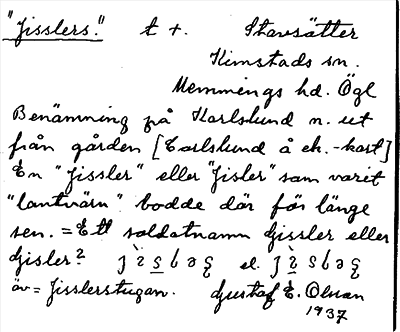 "Jisslers." t +. Stavsätter
Kimstads sn.
Memmings hd. Ögl
Benämning på Karlslund n. ut
från gården [Carlslund å ek.-kart]
En "Jissler" eller "Jisler" som varit
"lantvärn" bodde där för länge
sen. = Ett soldatnamn Gissler eller
Gisler? el.
äv = Jisslerstugan. Gustaf E. Olsson
1937